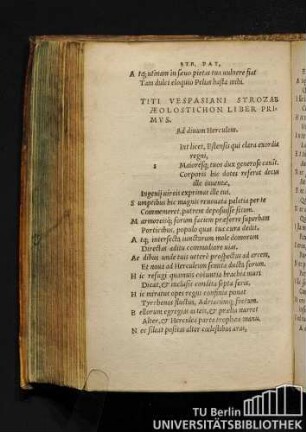 STR. PAT,
A tq; utinam in sæuo pietas tua uulnere fiat
Tam dulci eloquio Pelias hasta mihi.
TITI VESPASIANI STROZAE
ÆOLOSTICHON LIBER PRI-
MVS.
Ad diuum Herculem.
licet, Estensis qui clara exordia
regni,
Maioresq; tuos dux generose canit.
Corporis hic dotes referat
ille iuuentæ,
Ingenij uireis exprimat ille tui,
S umptibus hic magnis renouata palatia per te
Commemoret, putrem deposuisse situm.
M armoreisq; forum faciem præferre superbam
Porticibus, populo quæ tua cura dedit.
A tq; intersecta iunctarum mole domorum
Directas aditu commodiore uias.
Ac dicet unde tuis ueterē prospectus ad arcem,
Et noua ad Herculeum semita ducta forum.
H ic refugi quantus rotundus brachia muri
Dicat, & inclusis condita septa feris.
H ic memoret opes regnis confinia ponat
Tyrrhenos fluctus, Adriacumq; fretum.
B ellorum egregias arteis, & prælia narret
Alter, & Herculea parta trophæa manu.
N ec sileat positas alter cœlestibus aras,
TU Berlin
UNIVERSITÄTSBIBLIOTHEK